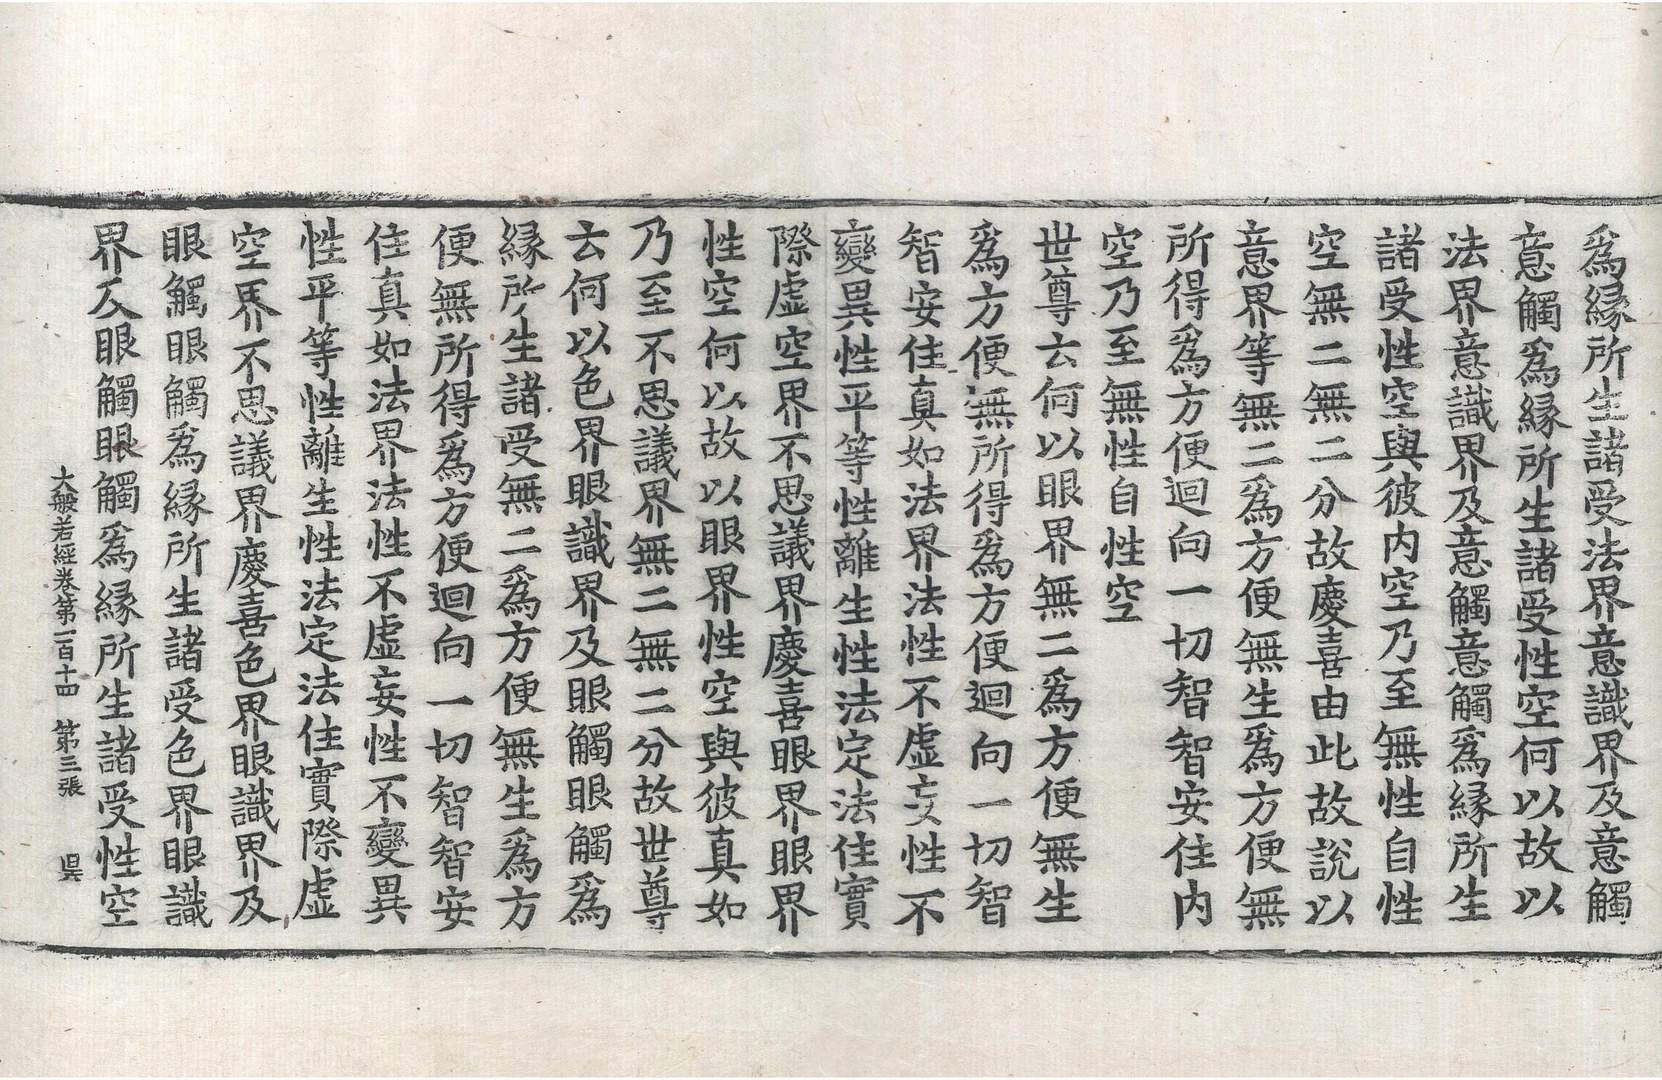 爲緣所生諸受法界意識界及意觸
意觸爲緣所生諸受性空何以故以
法界意識界及意觸意觸爲緣所生
諸受性空與彼內空乃至無性自性
空無二無二分故慶喜由此故說以
意界等無二爲方便無生爲方便無
所得爲方便迴向一切智智安住內
空乃至無性自性空
世尊云何以眼界無二爲方便無生
爲方便無所得爲方便迴向一切智
智安住真如法界法性不虛妄性不
變異性平等性離生性法定法住實
際虛空界不思議界慶喜眼界眼界
性空何以故以眼界性空與彼真如
乃至不思議界無二無二分故世尊
云何以色界眼識界及眼觸眼觸爲
緣所生諸受無二爲方便無生爲方
便無所得爲方便迴向一切智智安
住真如法界法性不虛妄性不變異
性平等性離生性法定法住實際虛
空界不思議界慶喜色界眼識界及
眼觸眼觸爲緣所生諸受色界眼識
界及眼觸眼觸爲緣所生諸受性空
大般若經卷第一百十四 第三張 昃